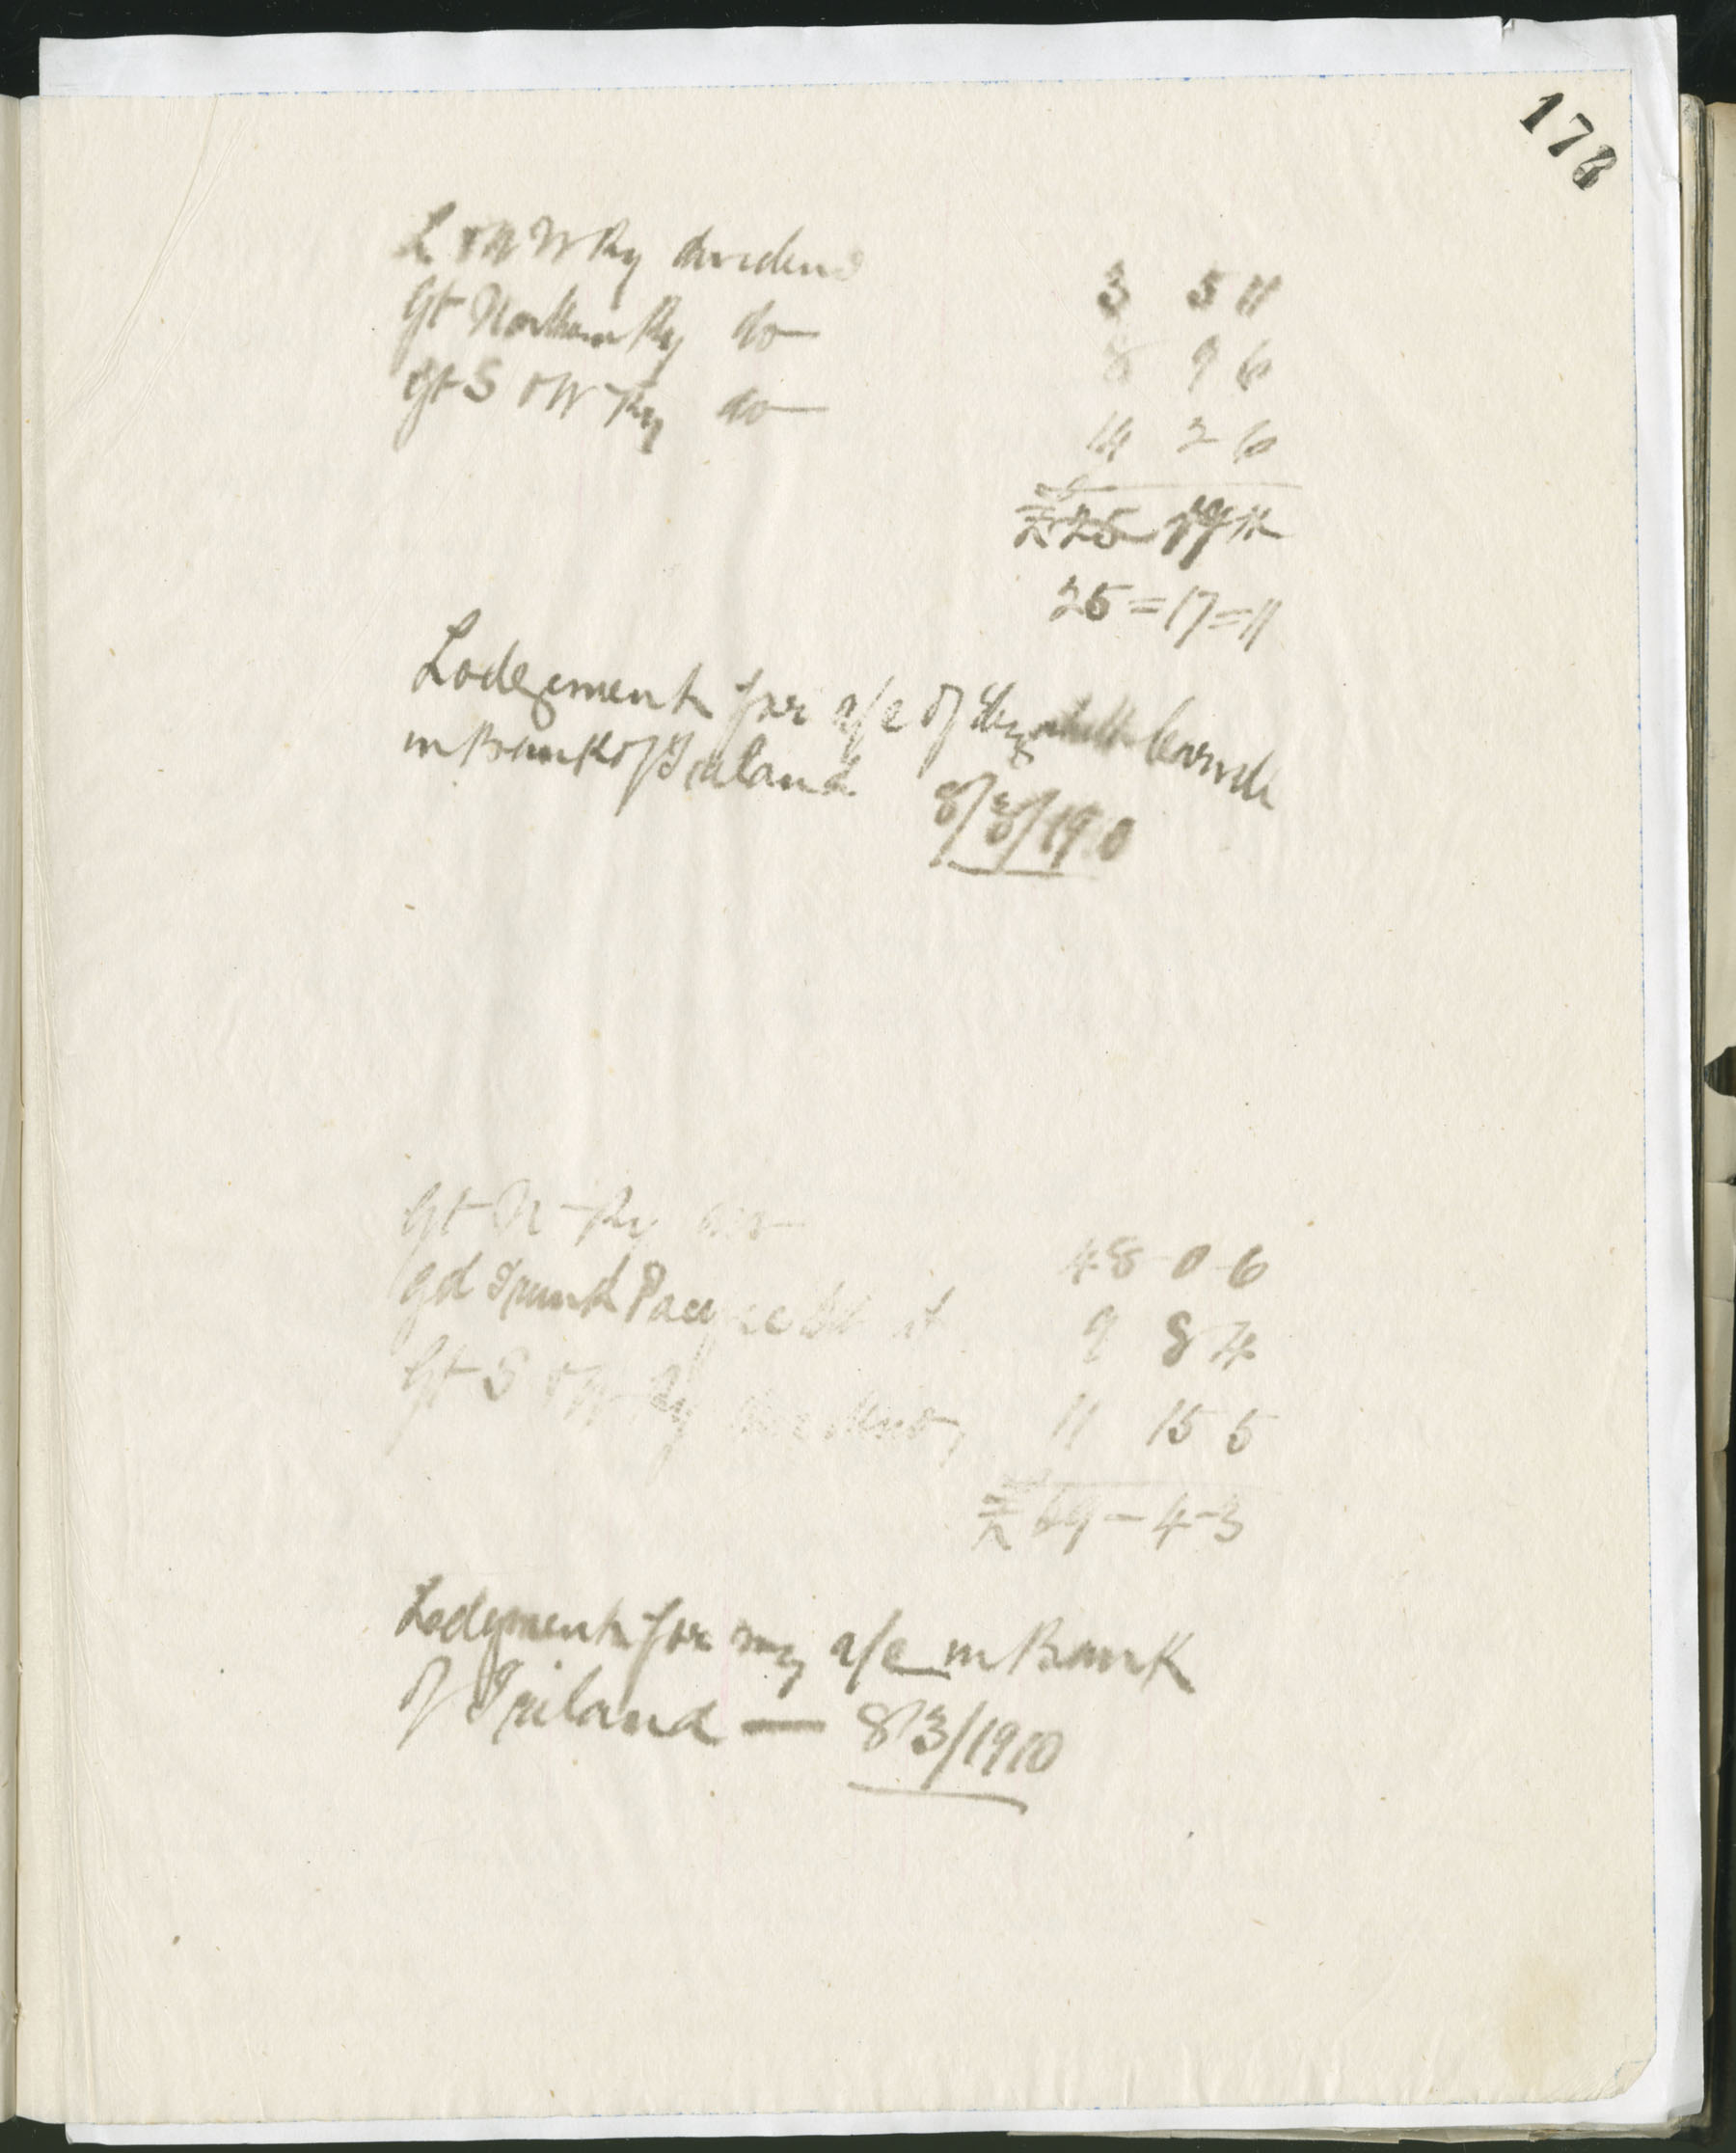 178
L & N W Ry dividend 3 5 11
Gt Northern Ry do 8 9 6
Gt S & W Ry do 14 2 6
£25 19 11
25=17=11
Lodgement for a/c of Elizabeth
in Bank of Ireland 8/3/1910
Gt N Ry 48-0-6
Gd Trunk Pacific 9 8 4
Gt S & W Ry dividend 11 15 5
£69-4-3
Lodgment for my a/c in Bank
of Ireland — 8/3/1910